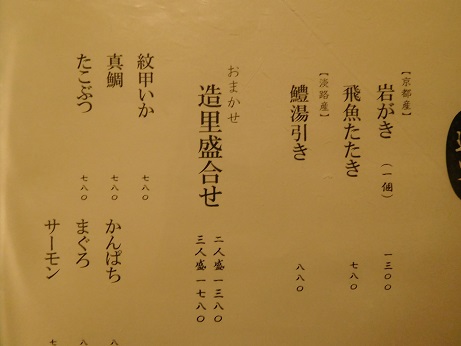 【京都産】
岩がき（一個） 一三〇〇
飛魚たたき 七八〇
【淡路産】
鱧湯引き 八八〇
おまかせ
造里盛合せ 二人盛 一三八〇
三人盛 一七八〇
紋甲いか 七八〇
真鯛 七八〇
たこぶつ 七八〇
かんぱち 八
まぐろ 八
サーモン 七